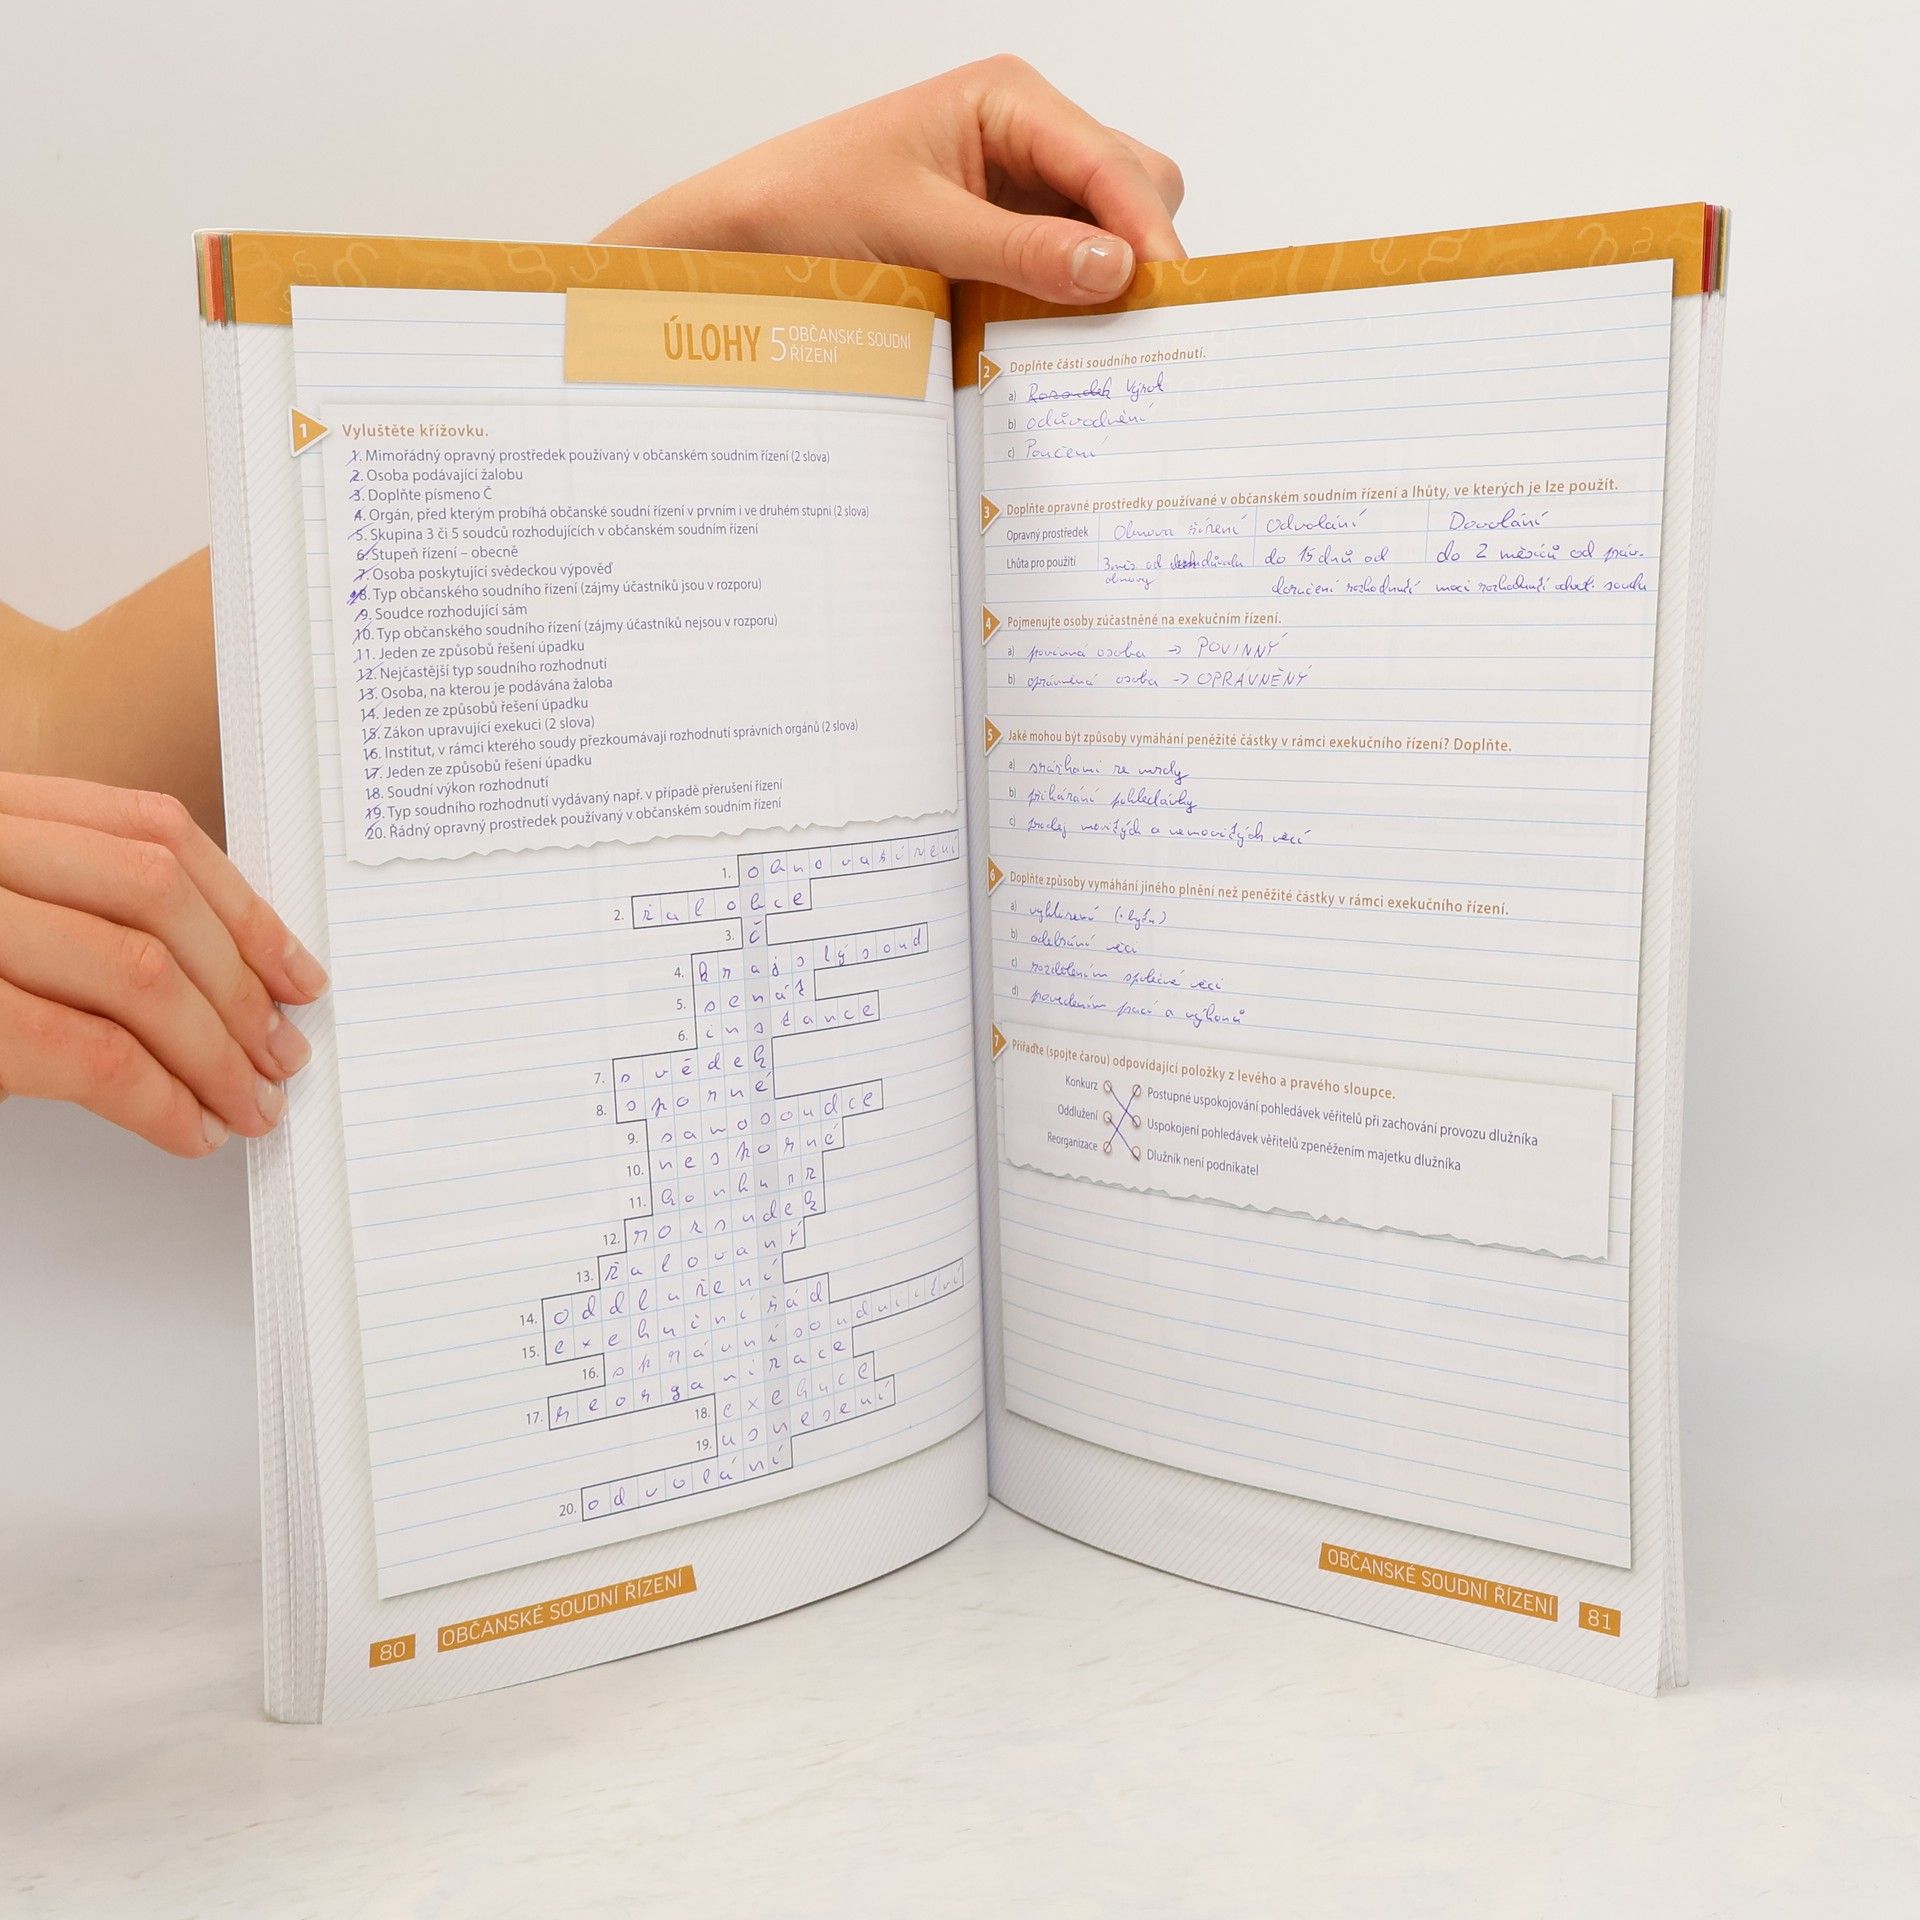 ÚLOHY 5 OBČANSKÉ SOUDNÍ ŘÍZENÍ
1 Vyluštěte křížovku.
1. Mimořádný opravný prostředek používaný v občanském soudním řízení (2 slova)
2. Osoba podávající žalobu
3. Doplňte písmeno Č
4. Orgán, před kterým probíhá občanské soudní řízení v prvním i ve druhém stupni (2 slova)
5. Skupina 3 či 5 soudců rozhodujících v občanském soudním řízení
6. Stupeň řízení – obecně
7. Osoba poskytující svědeckou výpověď
8. Typ občanského soudního řízení (zájmy účastníků jsou v rozporu)
9. Soudce rozhodující sám
10. Typ občanského soudního řízení (zájmy účastníků nejsou v rozporu)
11. Jeden ze způsobů řešení úpadku
12. Nejčastější typ soudního rozhodnutí
13. Osoba, na kterou je podávána žaloba
14. Jeden ze způsobů řešení úpadku
15. Zákon upravující exekuci (2 slova)
16. Institut, v rámci kterého soudy přezkoumávají rozhodnutí správních orgánů (2 slova)
17. Jeden ze způsobů řešení úpadku
18. Soudní výkon rozhodnutí
19. Typ soudního rozhodnutí vydávaný např. v případě přerušení řízení
20. Řádný opravný prostředek používaný v občanském soudním řízení
1. obnovařízení
2. žalobce
3. č
4. krajskýsoud
5. senát
6. instance
7. svědek
8. sporné
9. samosoudce
10. nesporné
11. konkurz
12. rozsudek
13. žalovaný
14. oddlužení
15. exekučnířád
16. správnísoudnictví
17. reorganizace
18. exekuce
19. usnesení
20. odvolání
80 OBČANSKÉ SOUDNÍ ŘÍZENÍ
2 Doplňte části soudního rozhodnutí.
a) Rozsudek Výrok
b) odůvodnění
c) Poučení
3 Doplňte opravné prostředky používané v občanském soudním řízení a lhůty, ve kterých je lze použít.
Opravný prostředek Obnova řízení Odvolání Dovolání
Lhůta pro použití 3 měs od důvodu do 15 dnů od do 2 měsíců od práv.
obnovy doručení rozhodnutí moci rozhodnutí odvol. soudu
4 Pojmenujte osoby zúčastněné na exekučním řízení.
a) povinná osoba → POVINNÝ
b) oprávněná osoba → OPRÁVNĚNÝ
5 Jaké mohou být způsoby vymáhání peněžité částky v rámci exekučního řízení? Doplňte.
a) srážkami ze mzdy
b) přikázání pohledávky
c) prodej movitých a nemovitých věcí
6 Doplňte způsoby vymáhání jiného plnění než peněžité částky v rámci exekučního řízení.
a) vyklizení (bytu)
b) odebrání věci
c) rozdělením společné věci
d) provedením prací a výkonů
7 Přiřaďte (spojte čarou) odpovídající položky z levého a pravého sloupce.
Konkurz Postupné uspokojování pohledávek věřitelů při zachování provozu dlužníka
Oddlužení Uspokojení pohledávek věřitelů zpeněžením majetku dlužníka
Reorganizace Dlužník není podnikatel
OBČANSKÉ SOUDNÍ ŘÍZENÍ 81